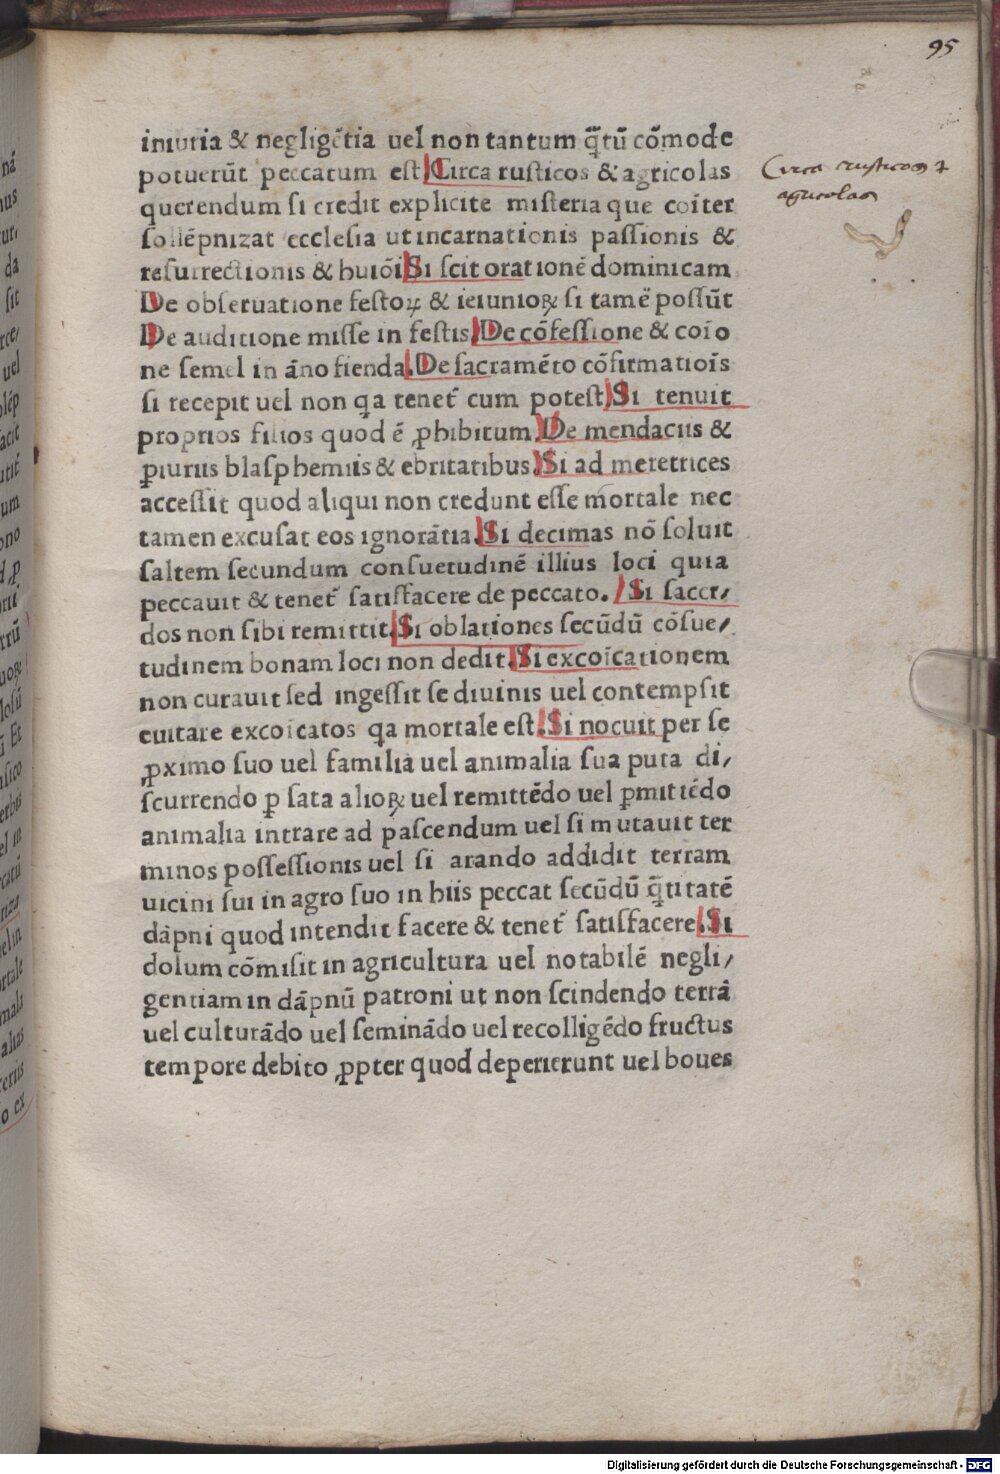 95
iniuria & negligētia uel non tantum q̄tū cōmode
potuerūt peccatum est Circa rusticos & agricolas
Circa rusticos &
agricolas
querendum si credit explicite misteria que coīter
sollēpnizat ecclesia ut incarnationis passionis &
resurrectionis & huiōi Si scit orationē dominicam
De obseruatione festoꝝ & ieiunioꝝ si tamē possūt
De auditione misse in festis. De cōfessione & coīo
ne semel in āno fienda. De sacramēto cōfirmatiōis
si recepit uel non qa tenet̄ cum potest Si tenuit
proprios filios quod ē ꝓhibitum. De mendaciis &
ꝑiuriis blasphemiis & ebritatibus. Si ad meretrices
accessit quod aliqui non credunt esse mortale nec
tamen excusat eos ignorātia. Si decimas nō soluit
saltem secundum consuetudinē illius loci quia
peccauit & tenet̄ satisfacere de peccato. Si sacer/
dos non sibi remittit. Si oblationes secūdū cōsue/
tudinem bonam loci non dedit. Si excoīcationem
non curauit sed ingessit se diuinis uel contempsit
euitare excoīcatos qa mortale est. Si nocuit per se
ꝓximo suo uel familia uel animalia sua puta di/
scurrendo ꝑ sata alioꝝ uel remittēdo uel ꝑmittēdo
animalia intrare ad pascendum uel si mutauit ter
minos possessionis uel si arando addidit terram
uicini sui in agro suo in hiis peccat secūdū q̄titatē
dāpni quod intendit facere & tenet̄ satisfacere. Si
dolum cōmisit in agricultura uel notabilē negli/
gentiam in dāpnū patroni ut non scindendo terrā
uel culturādo uel seminādo uel recolligēdo fructus
tempore debito ꝓpter quod deperierunt uel boues
Digitalisierung gefördert durch die Deutsche Forschungsgemeinschaft - DFG